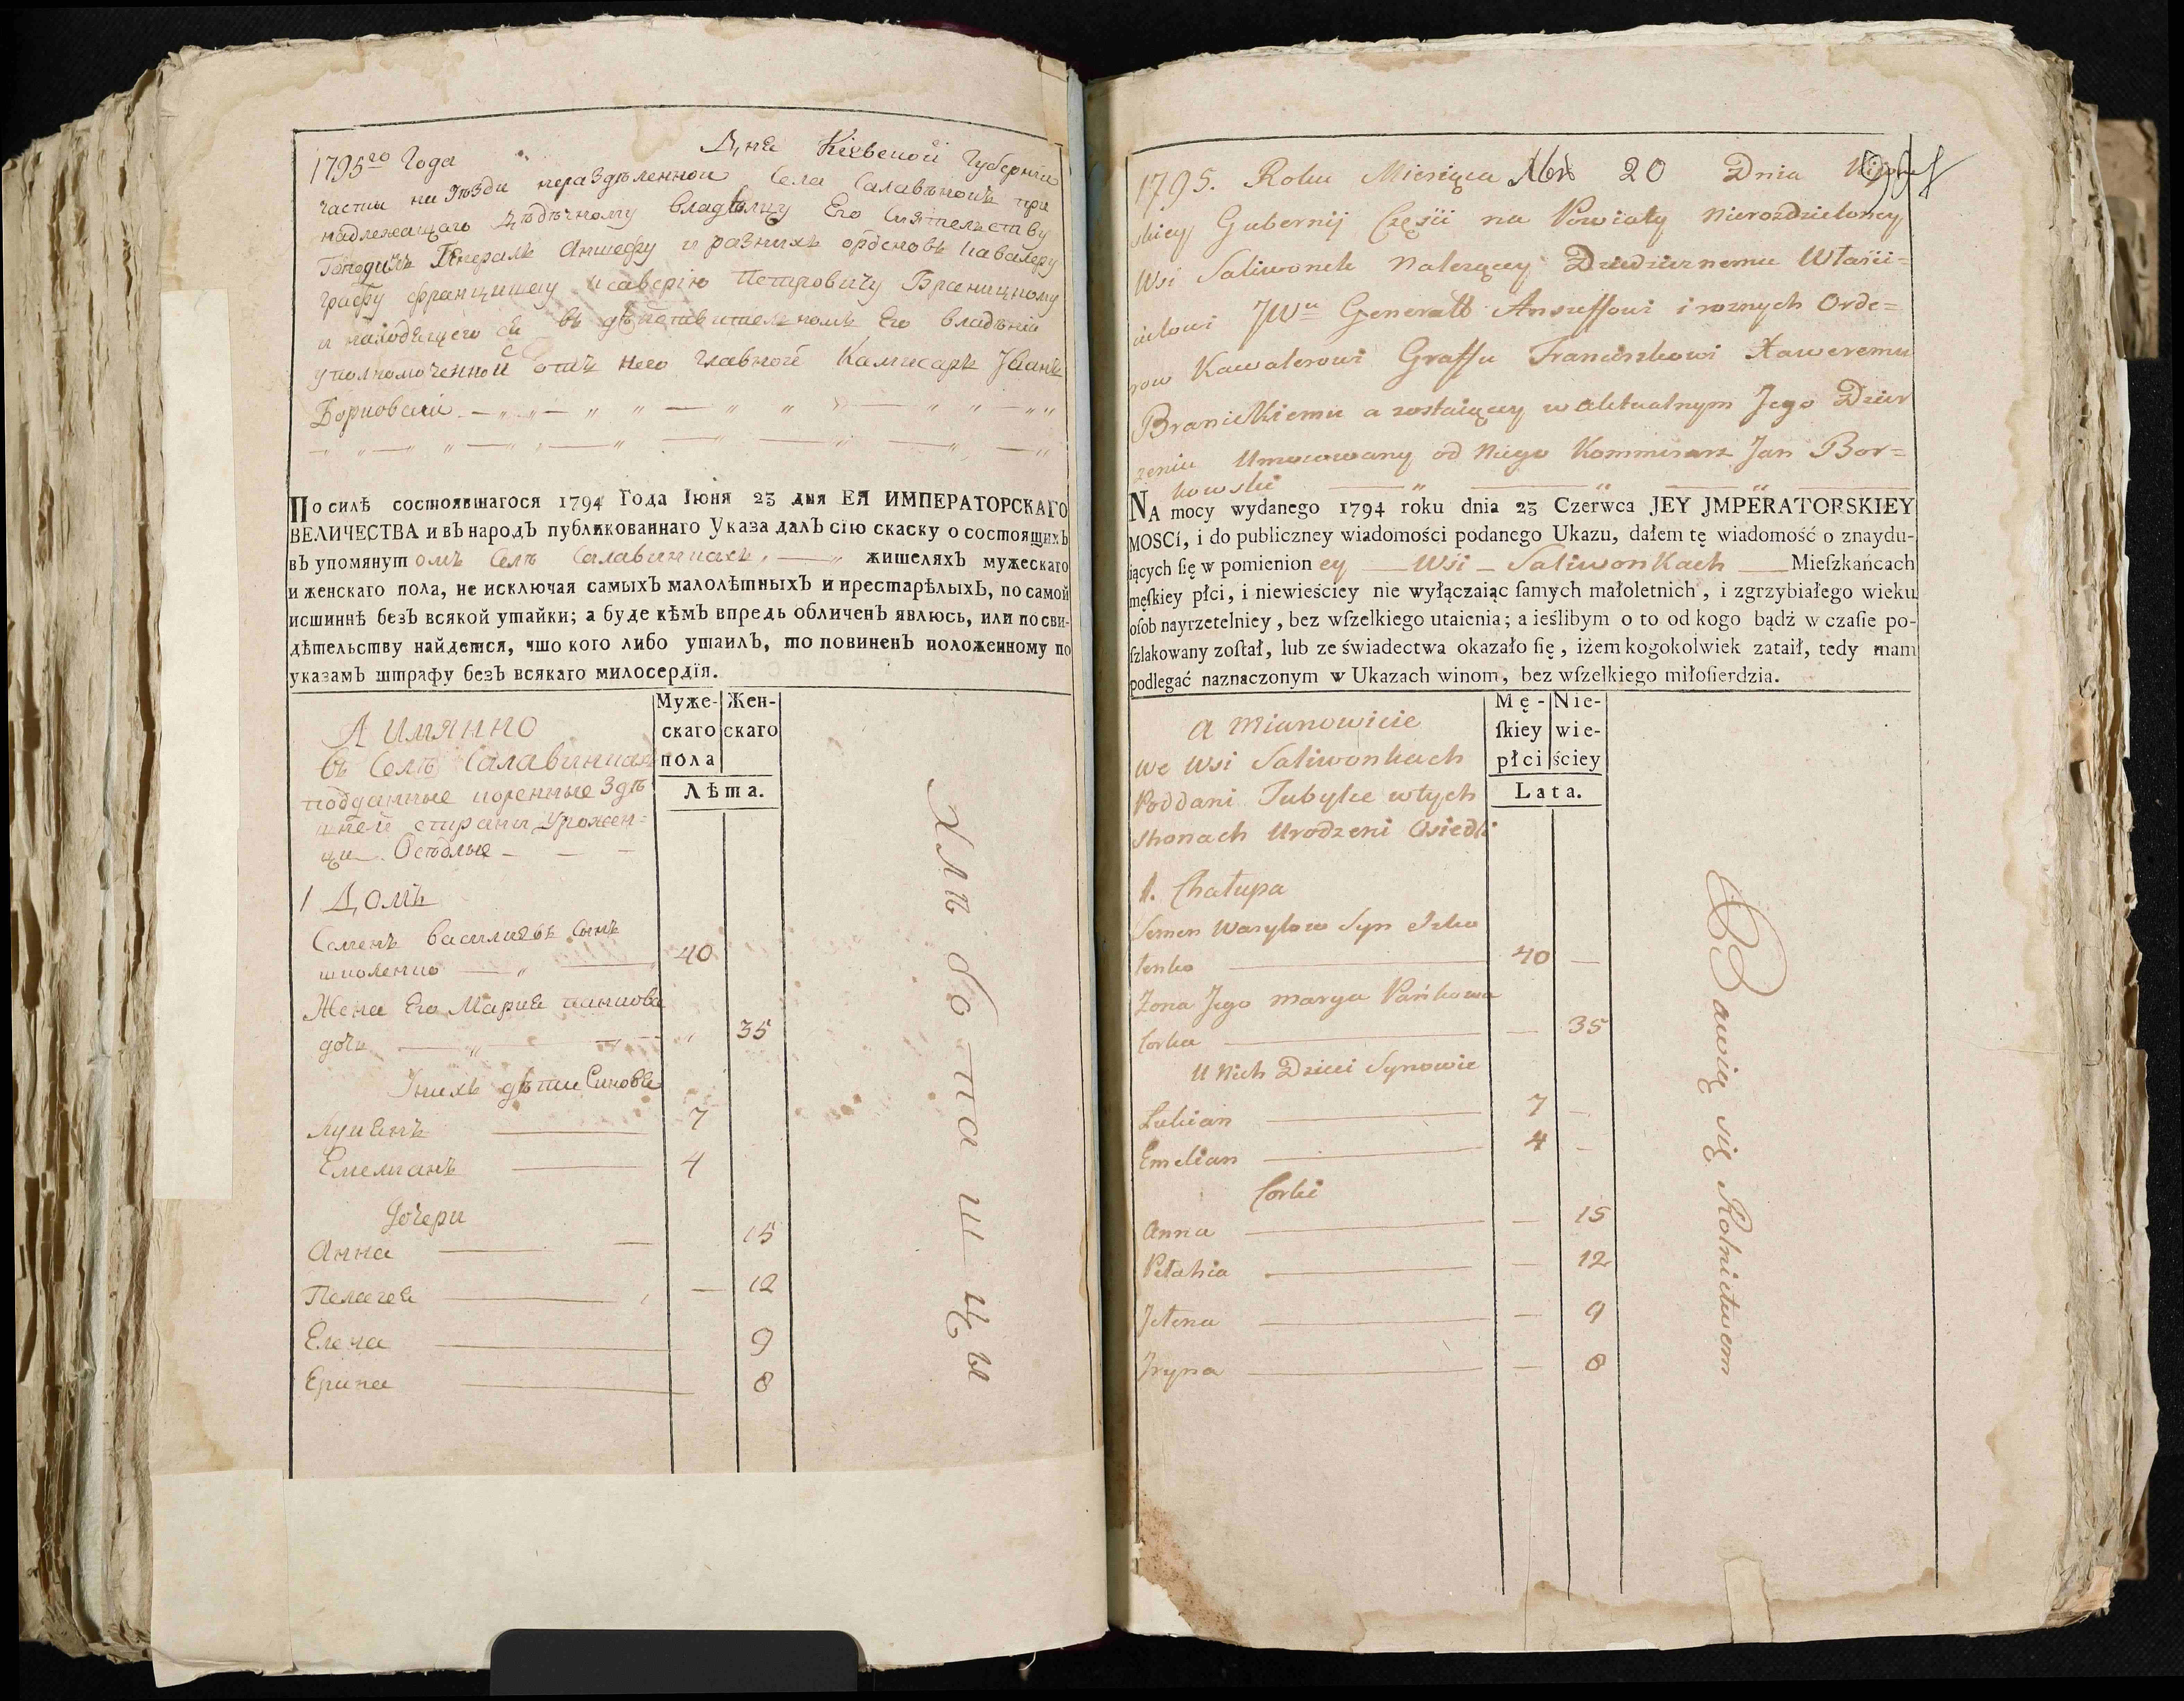 1795го Года Дня Кіевской Губерніи
части на Уѣзди нераздѣленной Села Салавѣнокъ при
надлежащаго Дѣдѣчному владѣлцу Его Сиятелству
Генералъ Аншефу и разныхъ орденовъ кавалеру
Графу Францишку Ксаверію Петровичу Браницкому
и находящегося въ дѣйствителномъ Его владѣніи
уполномоченной отъ него главной Камисаръ Іванъ
Борковскій
По силѣ состоявшагося 1794 Года Іюня 23 дня ЕЯ ИМПЕРАТОРСКАГО
ВЕЛИЧЕСТВА и въ народъ публикованнаго Указа далъ сію скаску о состоящихъ
въ упомянутомъ Селѣ Салавинкахъ, жителяхъ мужескаго
и женскаго пола, не исключая самыхъ малолѣтныхъ и престарѣлыхъ, по самой
истиннѣ безъ всякой утайки; а буде кѣмъ впредь обличенъ явлюсь, или по сви-
дѣтельству найдется, что кого либо утаилъ, то повиненъ положенному по
указамъ штрафу безъ всякаго милосердїя.
Муже- Жен-
скаго скаго
пола
Лѣта.
А Имянно
въ Селѣ Салавинках
подданные коренные Здѣ
шней стараны Урожен=
цы Осѣдлые
1 Домъ
Семенъ Василиевъ Сынъ
школенко 40
Жена Его Мария панкова
дочь 35
У нихъ дѣти Синовя
Лукянъ 7
Емелианъ 4
Дочери
Анна 15
Пелагея 12
Елена 9
Ерина 8
Хлѣбопашцы
1795. Roku Miesiąca 20 Dnia Kijow
skiey Gubernij Części na Powiaty Nierozdzieloney
Wsi Saliwonek Należącey Dziedzicznemu Właści=
cielowi JWu Generałb Ansceffowi i roznych Orde=
row Kawalerowi Graffu Franciszkowi Xaweremu
Branickiemu a zostaiącey w aktualnym Jego Dzier
żeniu Umocowany od Niego Kommisarz Jan Bor=
kowski
NA mocy wydanego 1794 roku dnia 23 Czerwca JEY JMPERATORSKIEY
MOSCI, i do publiczney wiadomości podanego Ukazu, dałem tę wiadomość o znaydu-
iących ſię w pomienioney Wsi Saliwonkach Mieſzkańcach
męſkiey płci, i niewieściey nie wyłączaiąc ſamych małoletnich, i zgrzybiałego wieku
oſob nayrzetelniey, bez wſzelkiego utaienia; a ieślibym o to od kogo bądź w czaſie po-
ſzlakowany zoſtał, lub ze świadectwa okazało ſię, iżem kogokolwiek zataił, tedy mam
podlegać naznaczonym w Ukazach winom, bez wſzelkiego miłoſierdzia.
Mę- Nie-
ſkiey wie-
płci ściey
Lata.
a mianowicie
we Wsi Saliwonkach
Poddani Tubylce w tych
stronach Urodzeni Osiedli
1. Chałupa
Semen Wasylow Syn Szko
lenko 40
Żona Jego marya Pańkowa
Corka 35
U Nich Dzieci Synowie
Lukian 7
Emelian 4
Corki
Anna 15
Pełahia 12
Jełena 9
Jryna 8
Bawią się Rolnictwem